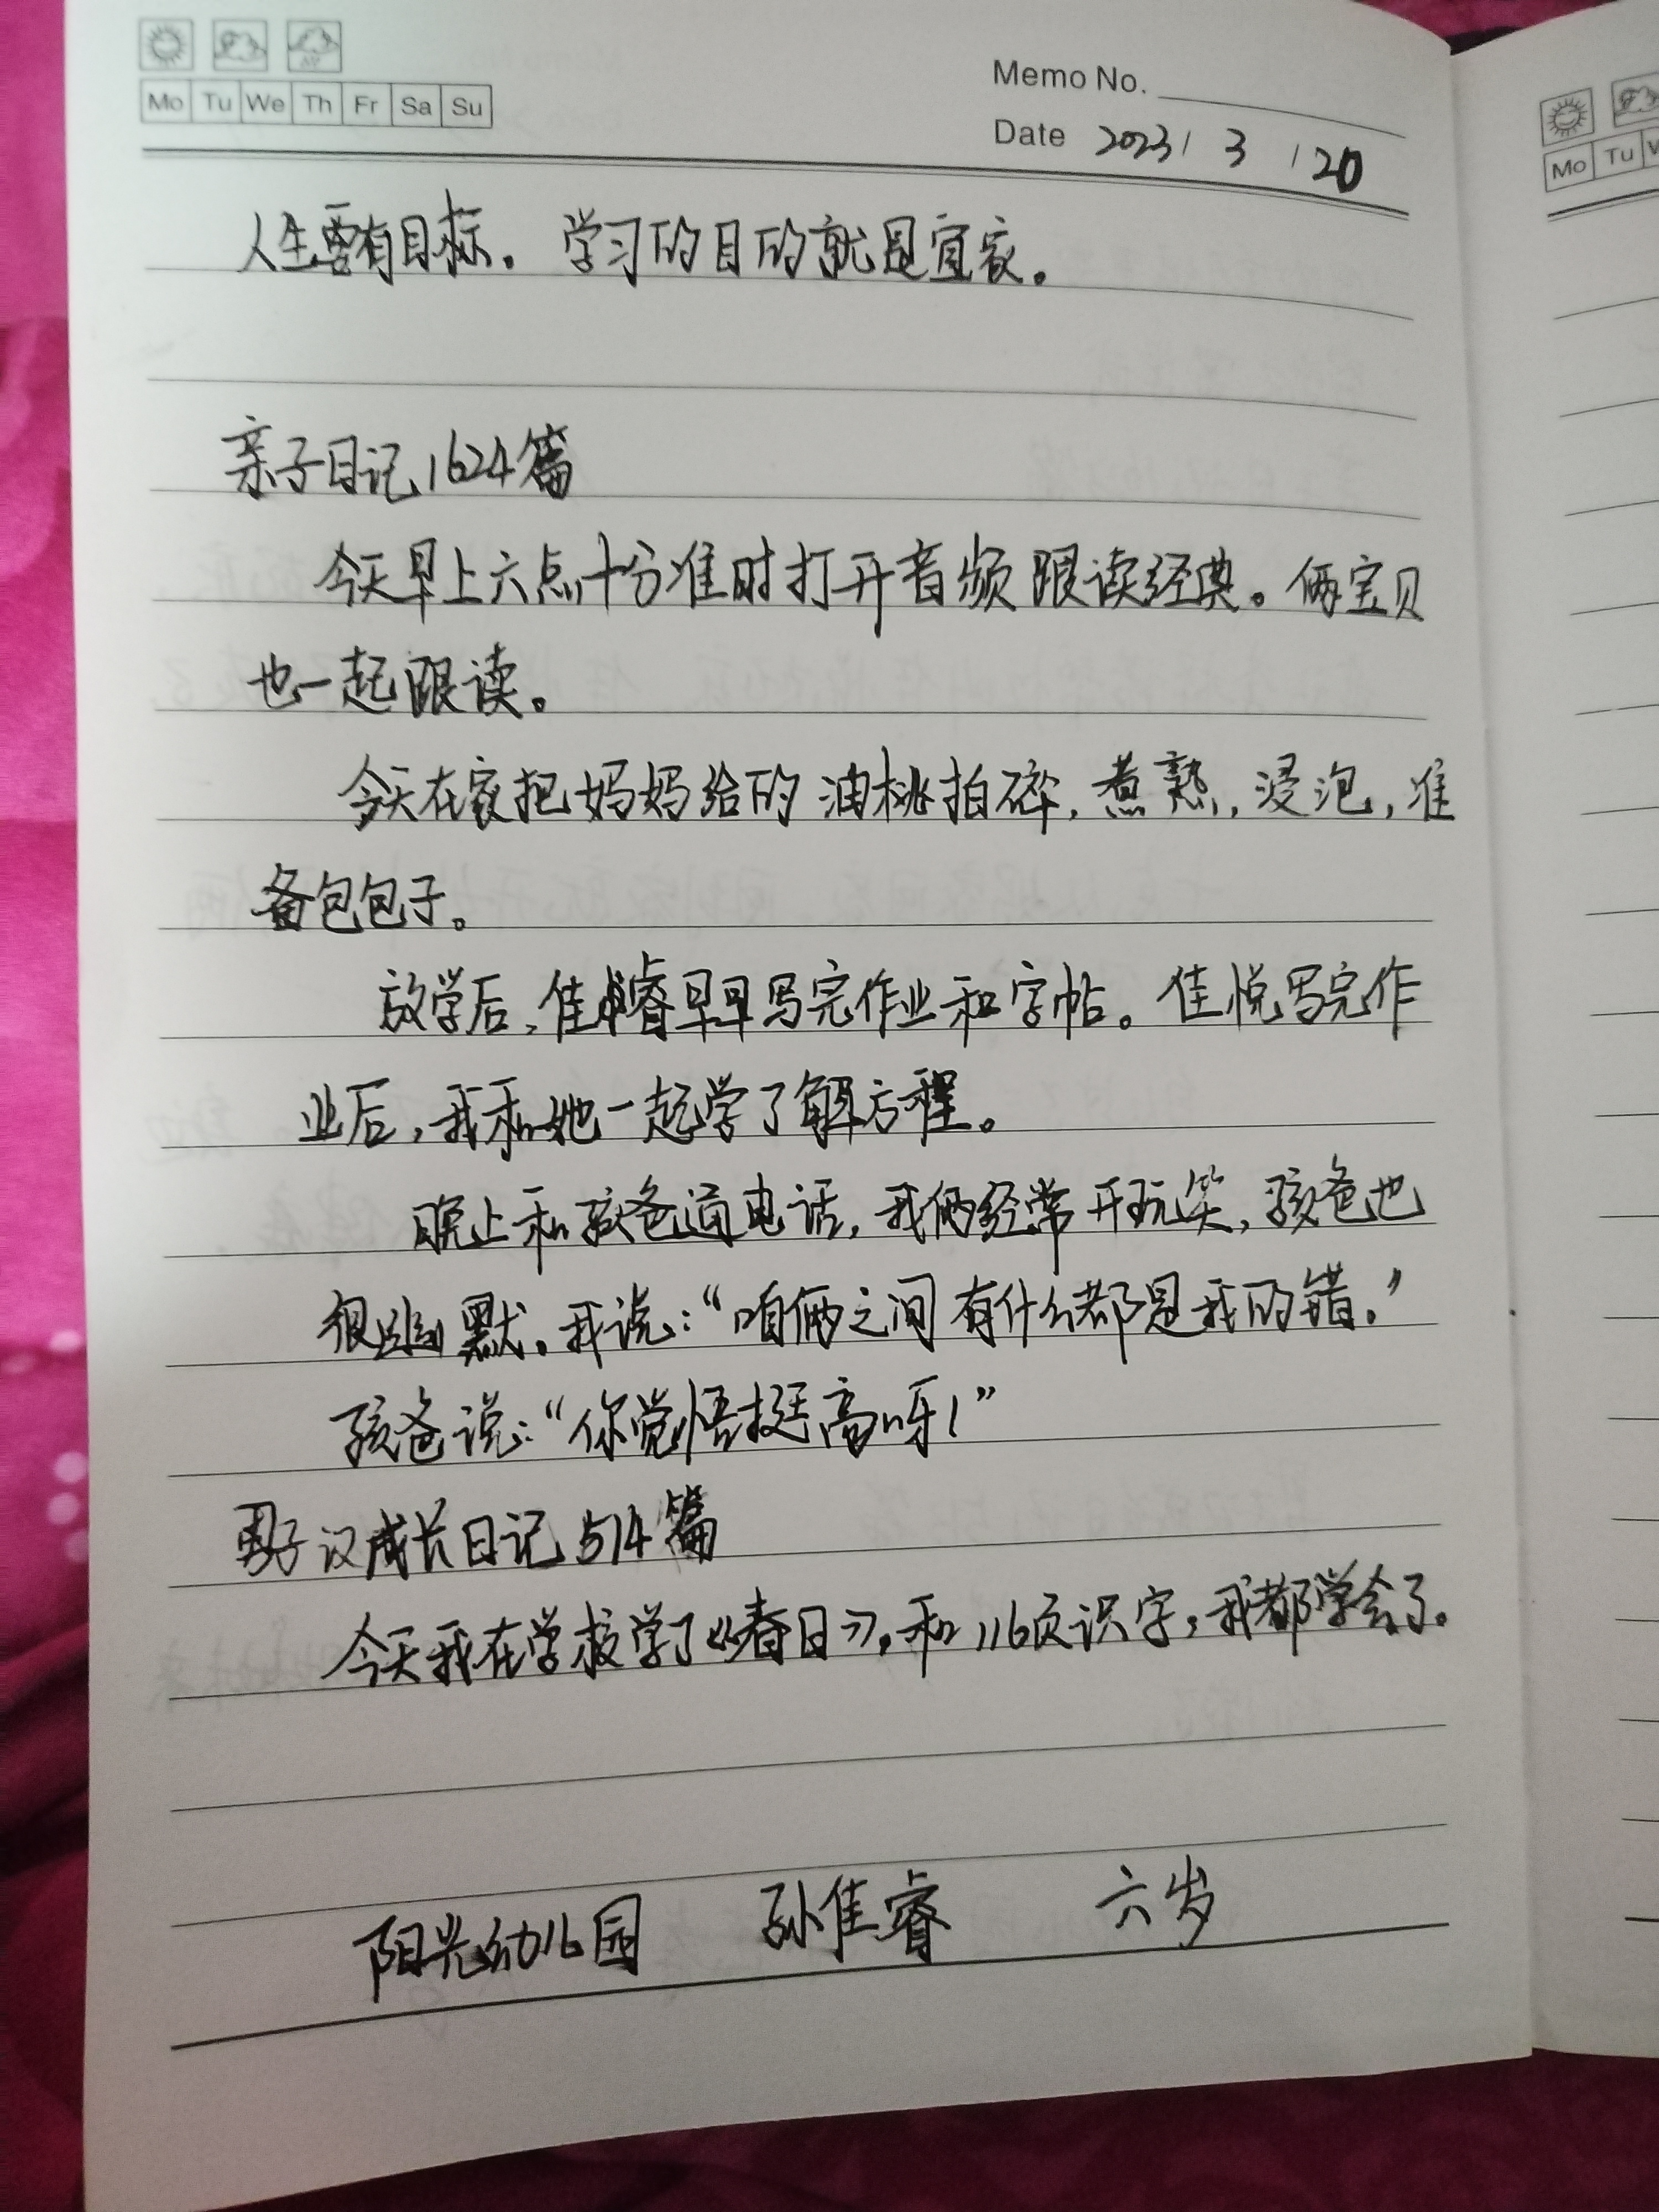 Mo Tu We Th Fr Sa Su
Memo No.
Date 2023 / 3 / 20
人生要有目标。学习的目的就是宜家。
亲子日记1624篇
今天早上六点十分准时打开音频跟读经典。俩宝贝
也一起跟读。
今天在家把妈妈给的油桃拍碎,煮熟,浸泡,准
备包包子。
放学后,佳睿早早写完作业和字帖。佳悦写完作
业后,我和她一起学了解方程。
晚上和孩爸通电话,我俩经常开玩笑,孩爸也
很幽默。我说:“咱俩之间有什么都是我的错。”
孩爸说:“你觉悟挺高呀!”
男子汉成长日记514篇
今天我在学校学了《春日》,和116页识字,我都学会了。
阳光幼儿园 孙佳睿 六岁
Mo Tu